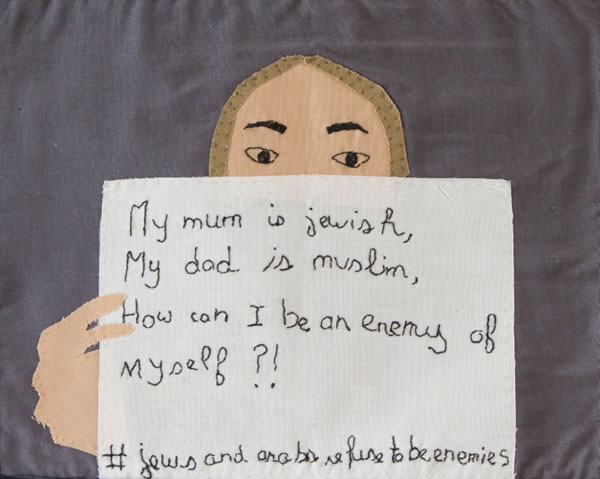 My mum is jewish,
My dad is muslim,
How can I be an enemy of
myself ?!
# jews and arabs refuse to be enemies